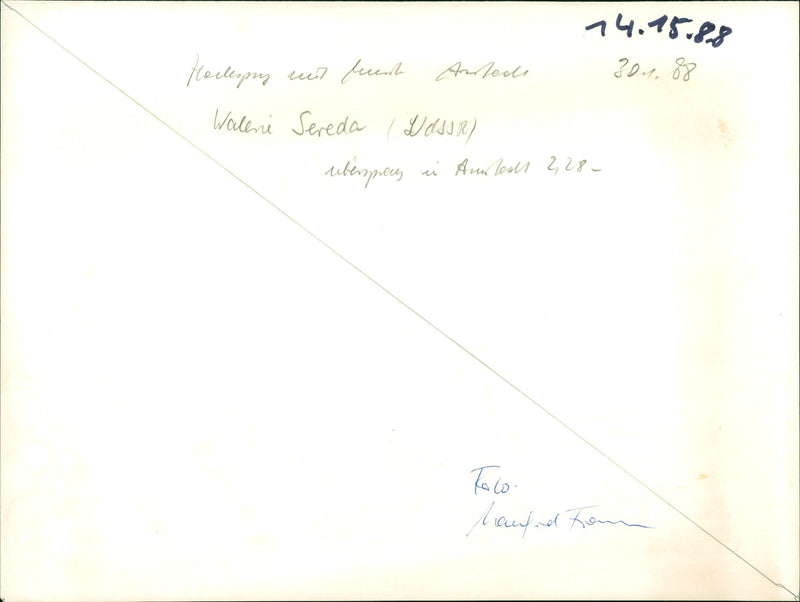 14.15.88
Hochsprung mit Musik Arnstadt 30.1.88
Valerie Sereda (UdSSR)
übersprang in Arnstadt 2,28-
Foto-
Manfred